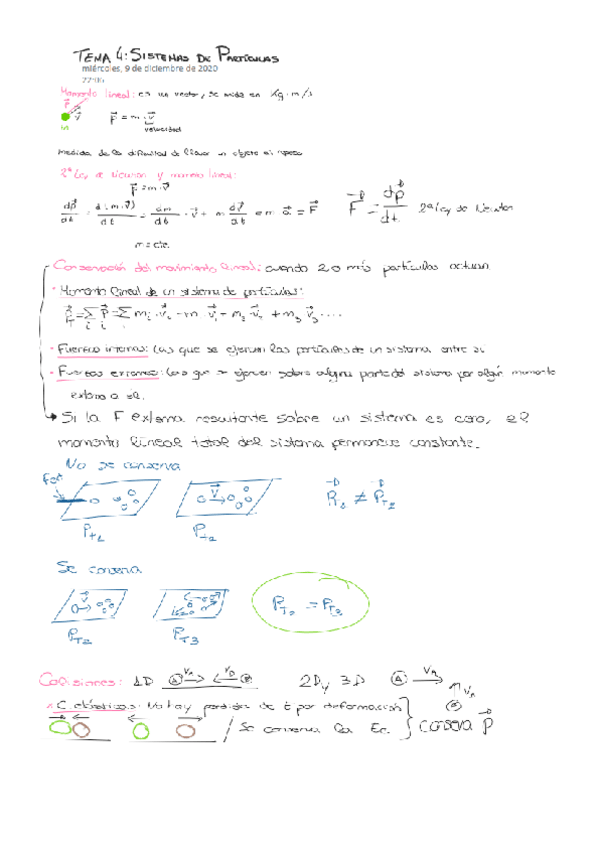 TEMA 4: SISTEMAS DE PARTÍCULAS
miércoles, 9 de diciembre de 2020
22:06
Momento lineal: es un vector, se mide en Kg·m/s
P⃗ v⃗ P⃗ = m·v⃗
m velocidad
medida de la dificultad de llevar un objeto al reposo
2ª Ley de Newton y momento lineal:
P⃗ = m·v⃗
dp⃗/dt = d(m·v⃗)/dt = dm/dt · v⃗ + m dv⃗/dt = m a⃗ = F⃗ F⃗ = dp⃗/dt 2ª Ley de Newton
m = cte.
Conservación del movimiento lineal: cuando 2 o más partículas actúan
· Momento lineal de un sistema de partículas:
P⃗T = Σi P⃗i = Σi mi·v⃗i = m1·v⃗1 + m2·v⃗2 + m3·v⃗3 ....
· Fuerzas internas: las que se ejercen las partículas de un sistema entre sí
· Fuerzas externas: las que se ejercen sobre alguna parte del sistema por algún momento
externo a él.
Si la F externa resultante sobre un sistema es cero, el
momento lineal total del sistema permanece constante.
No se conserva
Fext v⃗ P⃗T1 ≠ P⃗T2
PT1 PT2
Se conserva
v⃗ PT2 = PT3
PT2 PT3
Colisiones: 1D A vA vB B 2D y 3D A vA
vA
B
· C. elásticas: No hay perdida de E por deformación
Se conserva la Ec. } conserva P⃗